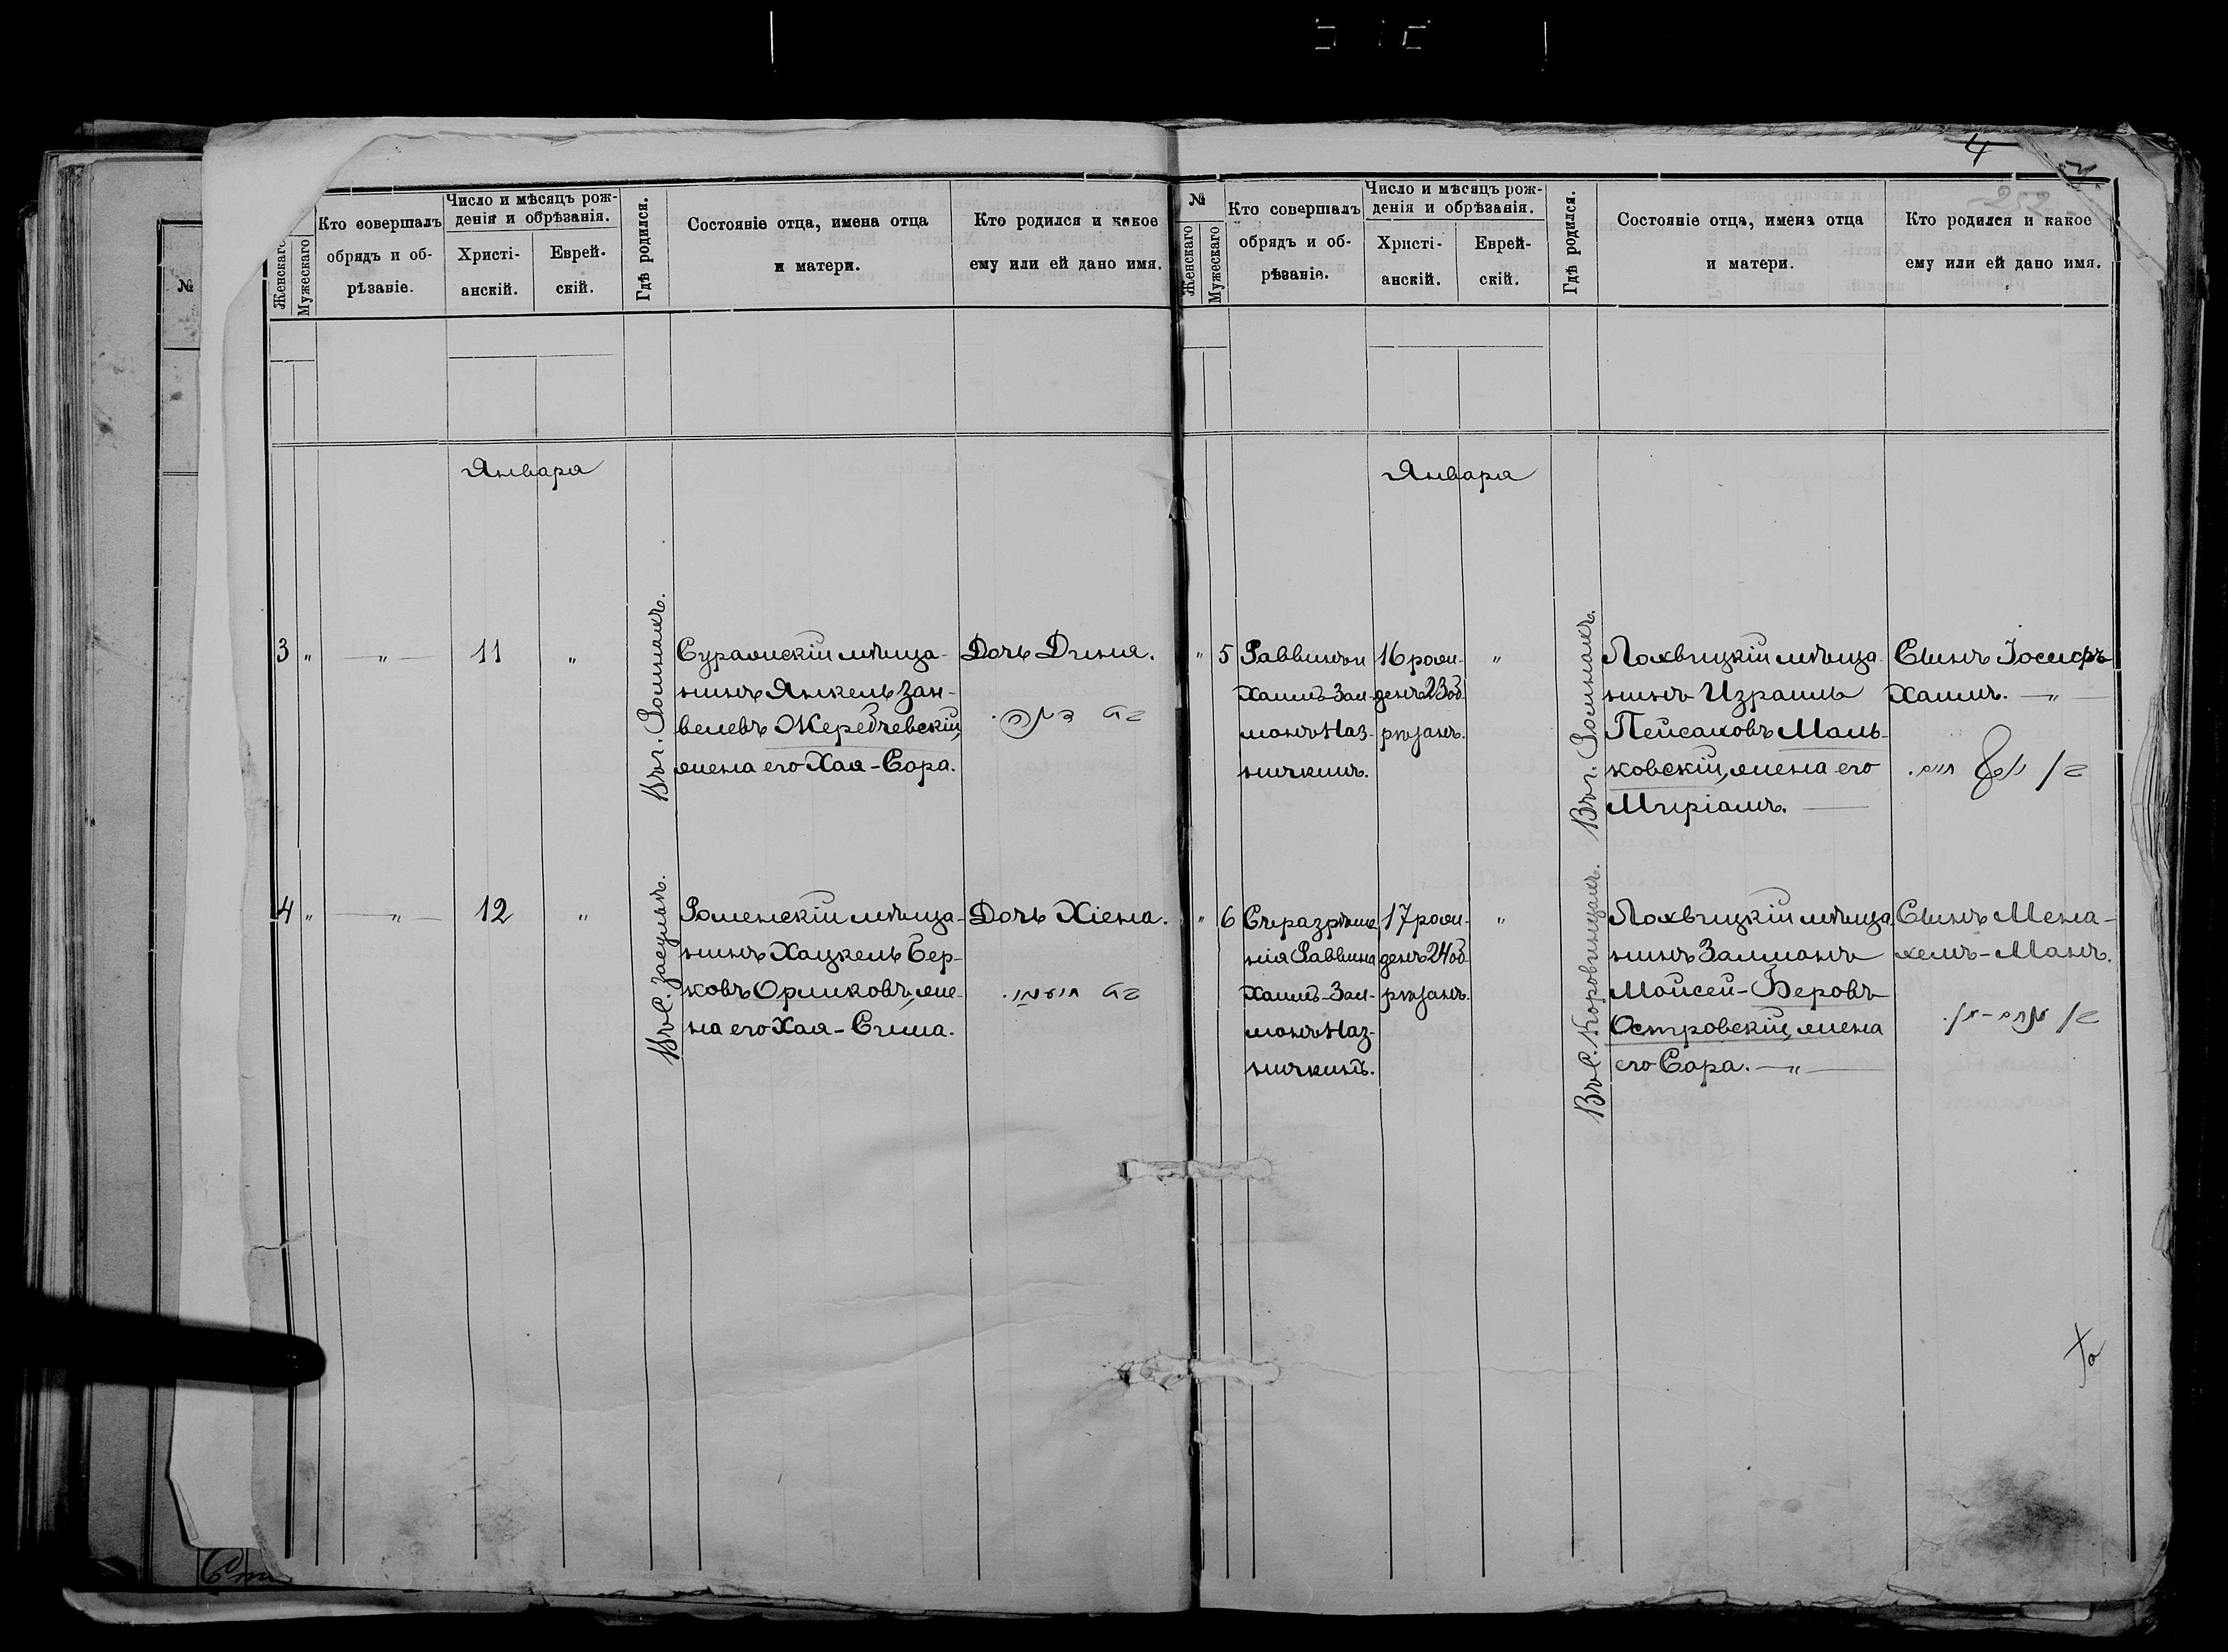 4
№
Женскаго
Мужескаго
Кто совершалъ
обрядъ и об-
рѣзаніе.
Число и мѣсяцъ рож-
денія и обрѣзанія.
Христі-
анскій.
Еврей-
скій.
Гдѣ родился.
Состояніе отца, имена отца
и матери.
Кто родился и какое
ему или ей дано имя.
Января
3 " — " — 11 "
Въ г. Ромнахъ.
Суражскій мѣща-
нинъ Янкель Зан-
велевъ Жеребчевскій,
жена его Хая-Сора.
Дочь Диня.
4 " — " — 12 "
Въ с. Засульѣ.
Роменскій мѣща-
нинъ Хацкель Бер-
ковъ Орликовъ, же-
на его Хая-Сима.
Дочь Хіена.
№
Женскаго
Мужескаго
Кто совершалъ
обрядъ и об-
рѣзаніе.
Число и мѣсяцъ рож-
денія и обрѣзанія.
Христі-
анскій.
Еврей-
скій.
Гдѣ родился.
Состояніе отца, имена отца
и матери.
Кто родился и какое
ему или ей дано имя.
Января
" 5
Раввинъ
Хаимъ-Зал-
манъ Наз-
ничкинъ.
16 рож-
денъ 23 об-
рѣзанъ.
"
Въ г. Ромнахъ.
Лохвицкій мѣща-
нинъ Израиль
Пейсаховъ Маль-
ковскій, жена его
Миріамъ. —
Сынъ Іосифъ
Хаимъ. — " —
" 6
Съ разрѣше-
нія Раввина
Хаимъ-Зал-
манъ Наз-
ничкинъ.
17 рож-
денъ 24 об-
рѣзанъ.
"
Въ с. Коровинцахъ.
Лохвицкій мѣща-
нинъ Залманъ
Мойсей-Беровъ
Островскій, жена
его Сора. — " —
Сынъ Мена-
хемъ-Манъ.